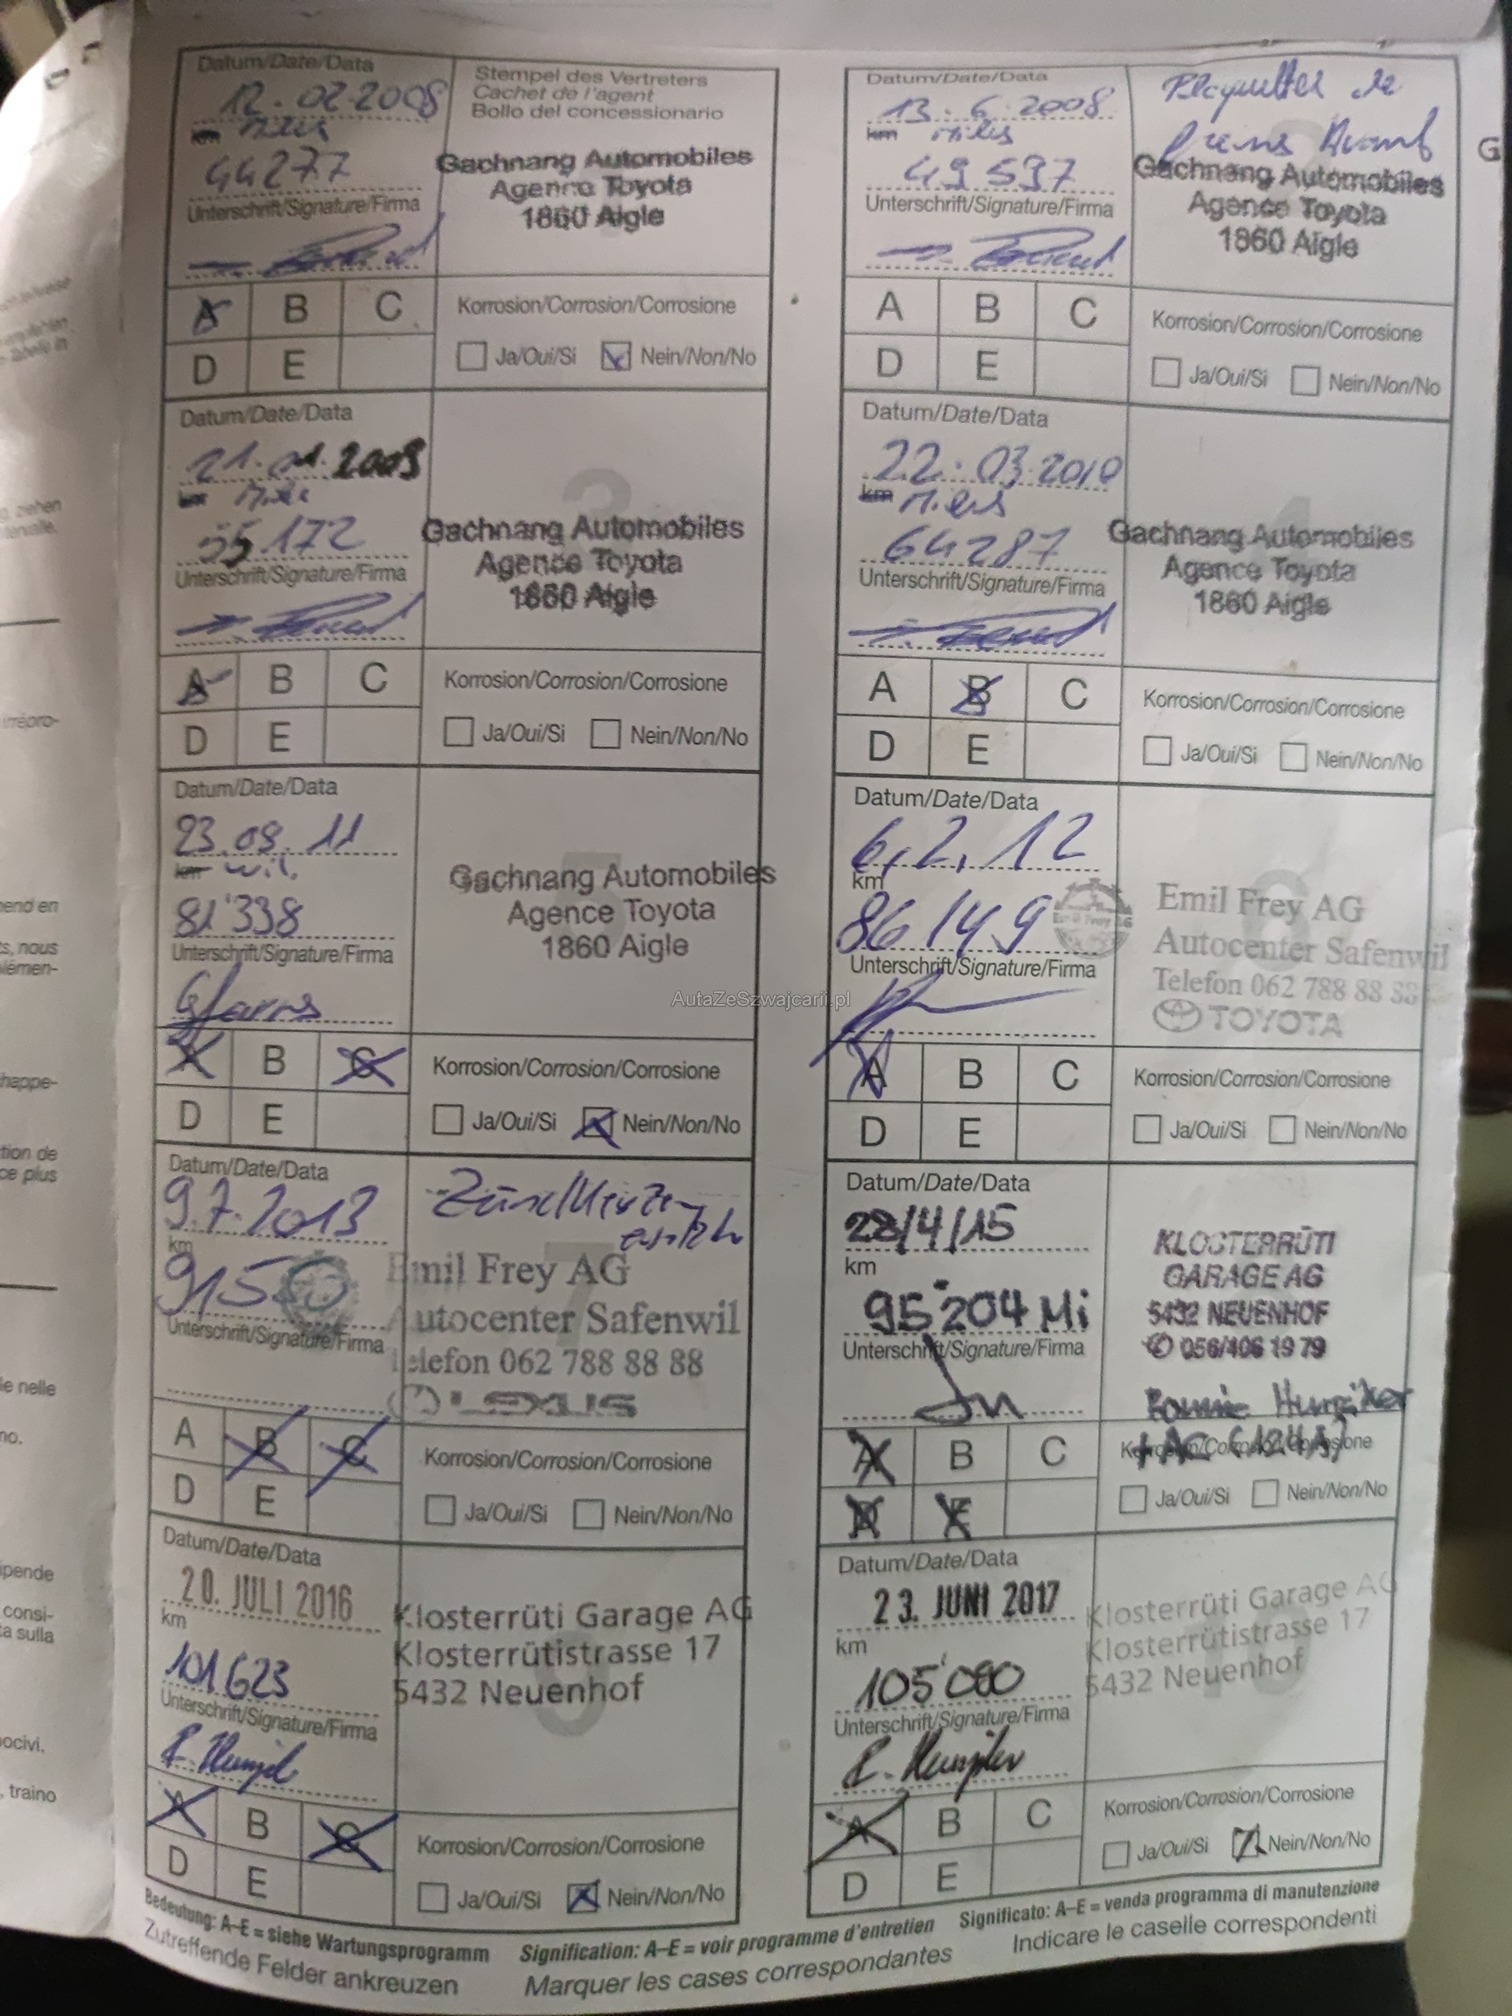 Datum/Date/Data
12.02.2008
km Miles
44277
Unterschrift/Signature/Firma
Stempel des Vertreters
Cachet de l'agent
Bollo del concessionario
Gachnang Automobiles
Agence Toyota
1860 Aigle
A B C
D E
Korrosion/Corrosion/Corrosione
Ja/Oui/Si Nein/Non/No
Datum/Date/Data
13.6.2008
km Miles
49597
Unterschrift/Signature/Firma
Plaquettes de
freins Avant
Gachnang Automobiles
Agence Toyota
1860 Aigle
A B C
D E
Korrosion/Corrosion/Corrosione
Ja/Oui/Si Nein/Non/No
G
Datum/Date/Data
21.01.2009
km Miles
55172
Unterschrift/Signature/Firma
3
Gachnang Automobiles
Agence Toyota
1860 Aigle
A B C
D E
Korrosion/Corrosion/Corrosione
Ja/Oui/Si Nein/Non/No
Datum/Date/Data
22.03.2010
km Miles
64287
Unterschrift/Signature/Firma
4
Gachnang Automobiles
Agence Toyota
1860 Aigle
A B C
D E
Korrosion/Corrosion/Corrosione
Ja/Oui/Si Nein/Non/No
Datum/Date/Data
23.09.11
km mil.
81'338
Unterschrift/Signature/Firma
5
Gachnang Automobiles
Agence Toyota
1860 Aigle
A B C
D E
Korrosion/Corrosion/Corrosione
Ja/Oui/Si Nein/Non/No
Datum/Date/Data
6.2.12
km
86149
Unterschrift/Signature/Firma
6
Emil Frey AG
Emil Frey AG
Autocenter Safenwil
Telefon 062 788 88 88
TOYOTA
A B C
D E
Korrosion/Corrosion/Corrosione
Ja/Oui/Si Nein/Non/No
AutaZeSzwajcarii.pl
Datum/Date/Data
9.7.2013
km
91550
Unterschrift/Signature/Firma
Zündkerzen
ersetzt
7
Emil Frey AG
Autocenter Safenwil
Telefon 062 788 88 88
LEXUS
A B C
D E
Korrosion/Corrosion/Corrosione
Ja/Oui/Si Nein/Non/No
Datum/Date/Data
28/4/15
km
95'204 Mi
Unterschrift/Signature/Firma
KLOSTERRÜTI
GARAGE AG
5432 NEUENHOF
056/406 19 79
A B C
D E
Korrosion/Corrosion/Corrosione
Ja/Oui/Si Nein/Non/No
Datum/Date/Data
20. JULI 2016
km
101'623
Unterschrift/Signature/Firma
R. Hunziker
9
Klosterrüti Garage AG
Klosterrütistrasse 17
5432 Neuenhof
A B C
D E
Korrosion/Corrosion/Corrosione
Ja/Oui/Si Nein/Non/No
Datum/Date/Data
23. JUNI 2017
km
105'080
Unterschrift/Signature/Firma
R. Hunziker
10
Klosterrüti Garage AG
Klosterrütistrasse 17
5432 Neuenhof
A B C
D E
Korrosion/Corrosion/Corrosione
Ja/Oui/Si Nein/Non/No
Bedeutung: A–E = siehe Wartungsprogramm
Zutreffende Felder ankreuzen
Signification: A–E = voir programme d'entretien
Marquer les cases correspondantes
Significato: A–E = venda programma di manutenzione
Indicare le caselle correspondenti
ziehen
irrépro-
end en
s, nous
lémen-
happe-
tion de
ce plus
le nelle
no.
ipende
consi-
ta sulla
ocivi.
, traino